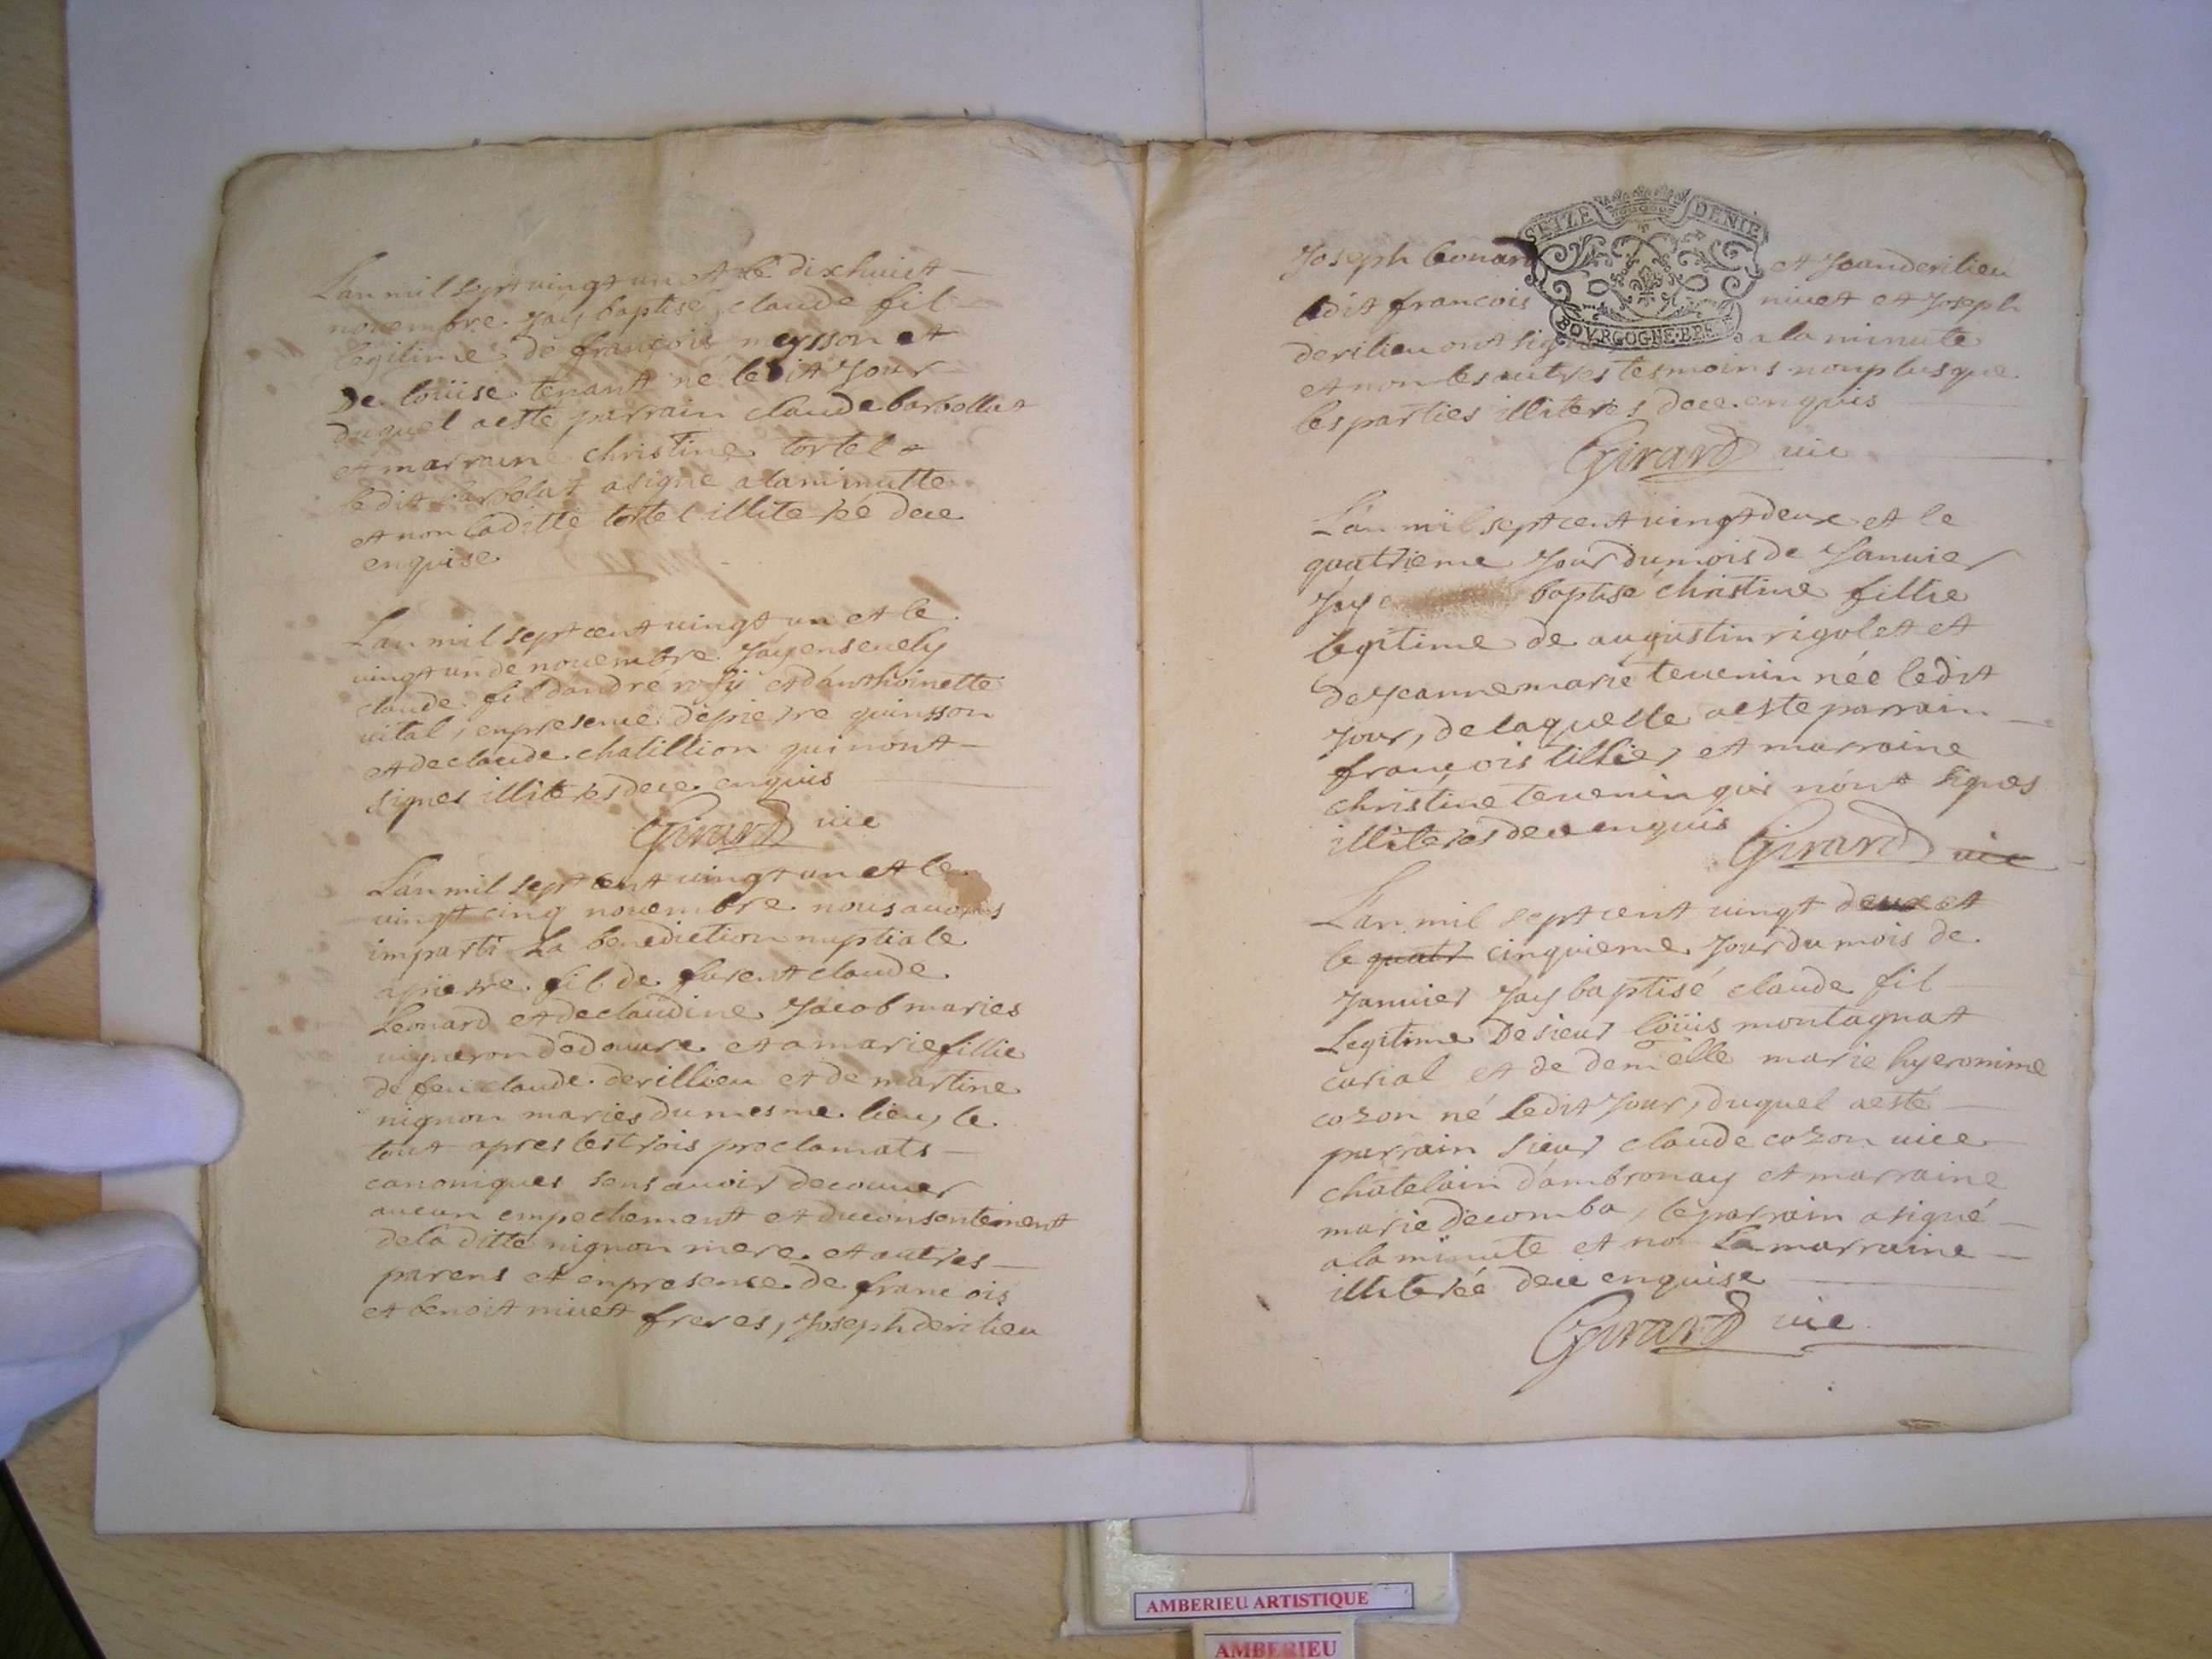 L'an mil sept vingt un et le dixhuict
novembre Jay baptisé claude fil
legitime de françois meysson et
De loüise tenant né ledit Jour
duquel aesté parrain claude barbollat
et marraine christine tortel
ledit barbolat a signé alaminutte
et non laditte tortel illiterée dece
enquise
L'an mil sept cent vingt un et le
vingt un de novembre Jay ensevely
claude fil d'andré et d'anthoinette
vital, en presence de pierre quinsson
et de claude chatillion qui nont
signes illiteres dece enquis
Girard vic
L'an mil sept cent vingt un et le
vingt cinq novembre nous avons
imparti La benediction nuptiale
a pierre fil de furent claude
Leonard et de claudine Jacob maries
vigneron dedouvre et a marie fillie
de feu claude derillieu et de martine
nignon maries du mesme lieu, le
tout apres les trois proclamats
canoniques sens avoir decouver
aucun empechement et du consentement
de la ditte nignon mere et autres
parens et en presence de francois
et benoit nivet freres, Joseph derilieu
Joseph leonard et Jean derilieu
ledit francois nivet et Joseph
derilieu ont signé a la minute
et non les autres tesmoins non plus que
les parties illiteres dece enquis
Girard vic
L'an mil sept cent vingt deux et le
quatrieme Jour du mois de Janvier
Jay baptisé christine fillie
legitime de augustin rigolet et
de Jeanne marie tevenin née ledit
Jour, de laquelle aesté parrain
françois tillier et marraine
christine tevenin qui nont signes
illiteres dece enquis
Girard vic
L'an mil sept cent vingt deux et
le quatr cinquieme Jour du mois de
Janvier Jay baptisé claude fil
Legitime De sieur loüis montagnat
curial et de demelle marie hyeronime
cozon né ledit Jour, duquel aesté
parrain sieur claude cozon vice
châtelain d'ambronay et marraine
marie decomba, le parrain a signé
a la minute et non La marraine
illiterée dece enquise
Girard vic
SEIZE DENIE
BOVRGOGNE·BRES
AMBERIEU ARTISTIQUE
AMBERIEU